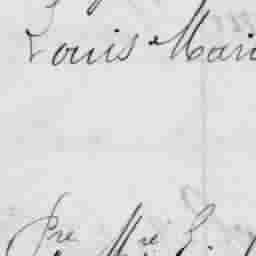 Louis Mari
Pre Mre L.